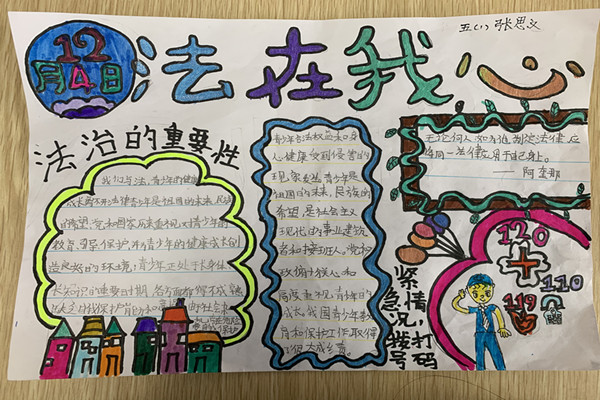 五(1) 张思义
12
月4日
法在我心
法治的重要性
我们与法,青少年的健康
成长离不开法律青少年是祖国的未来,民族
的希望,党和国家历来重视对青少年的
教育,引导,保护,并为青少年的健康成长创
造良好的环境,青少年正处于长身体
长知识的重要时期
青少年合法权益
心健康受到侵害的
现象
祖国的未来,民族的
希望,是社会主义
现代的事业建筑
者和接班人,党和
政府十分人和
局度重视,青少年的
成长,我国青少年教
育和保护工作取得
了很大成绩。
无论何人 如为谁 制定法律,应
将同一法律应用于自身。
——阿奎那
紧急情况,拨打
号码
120
110
119